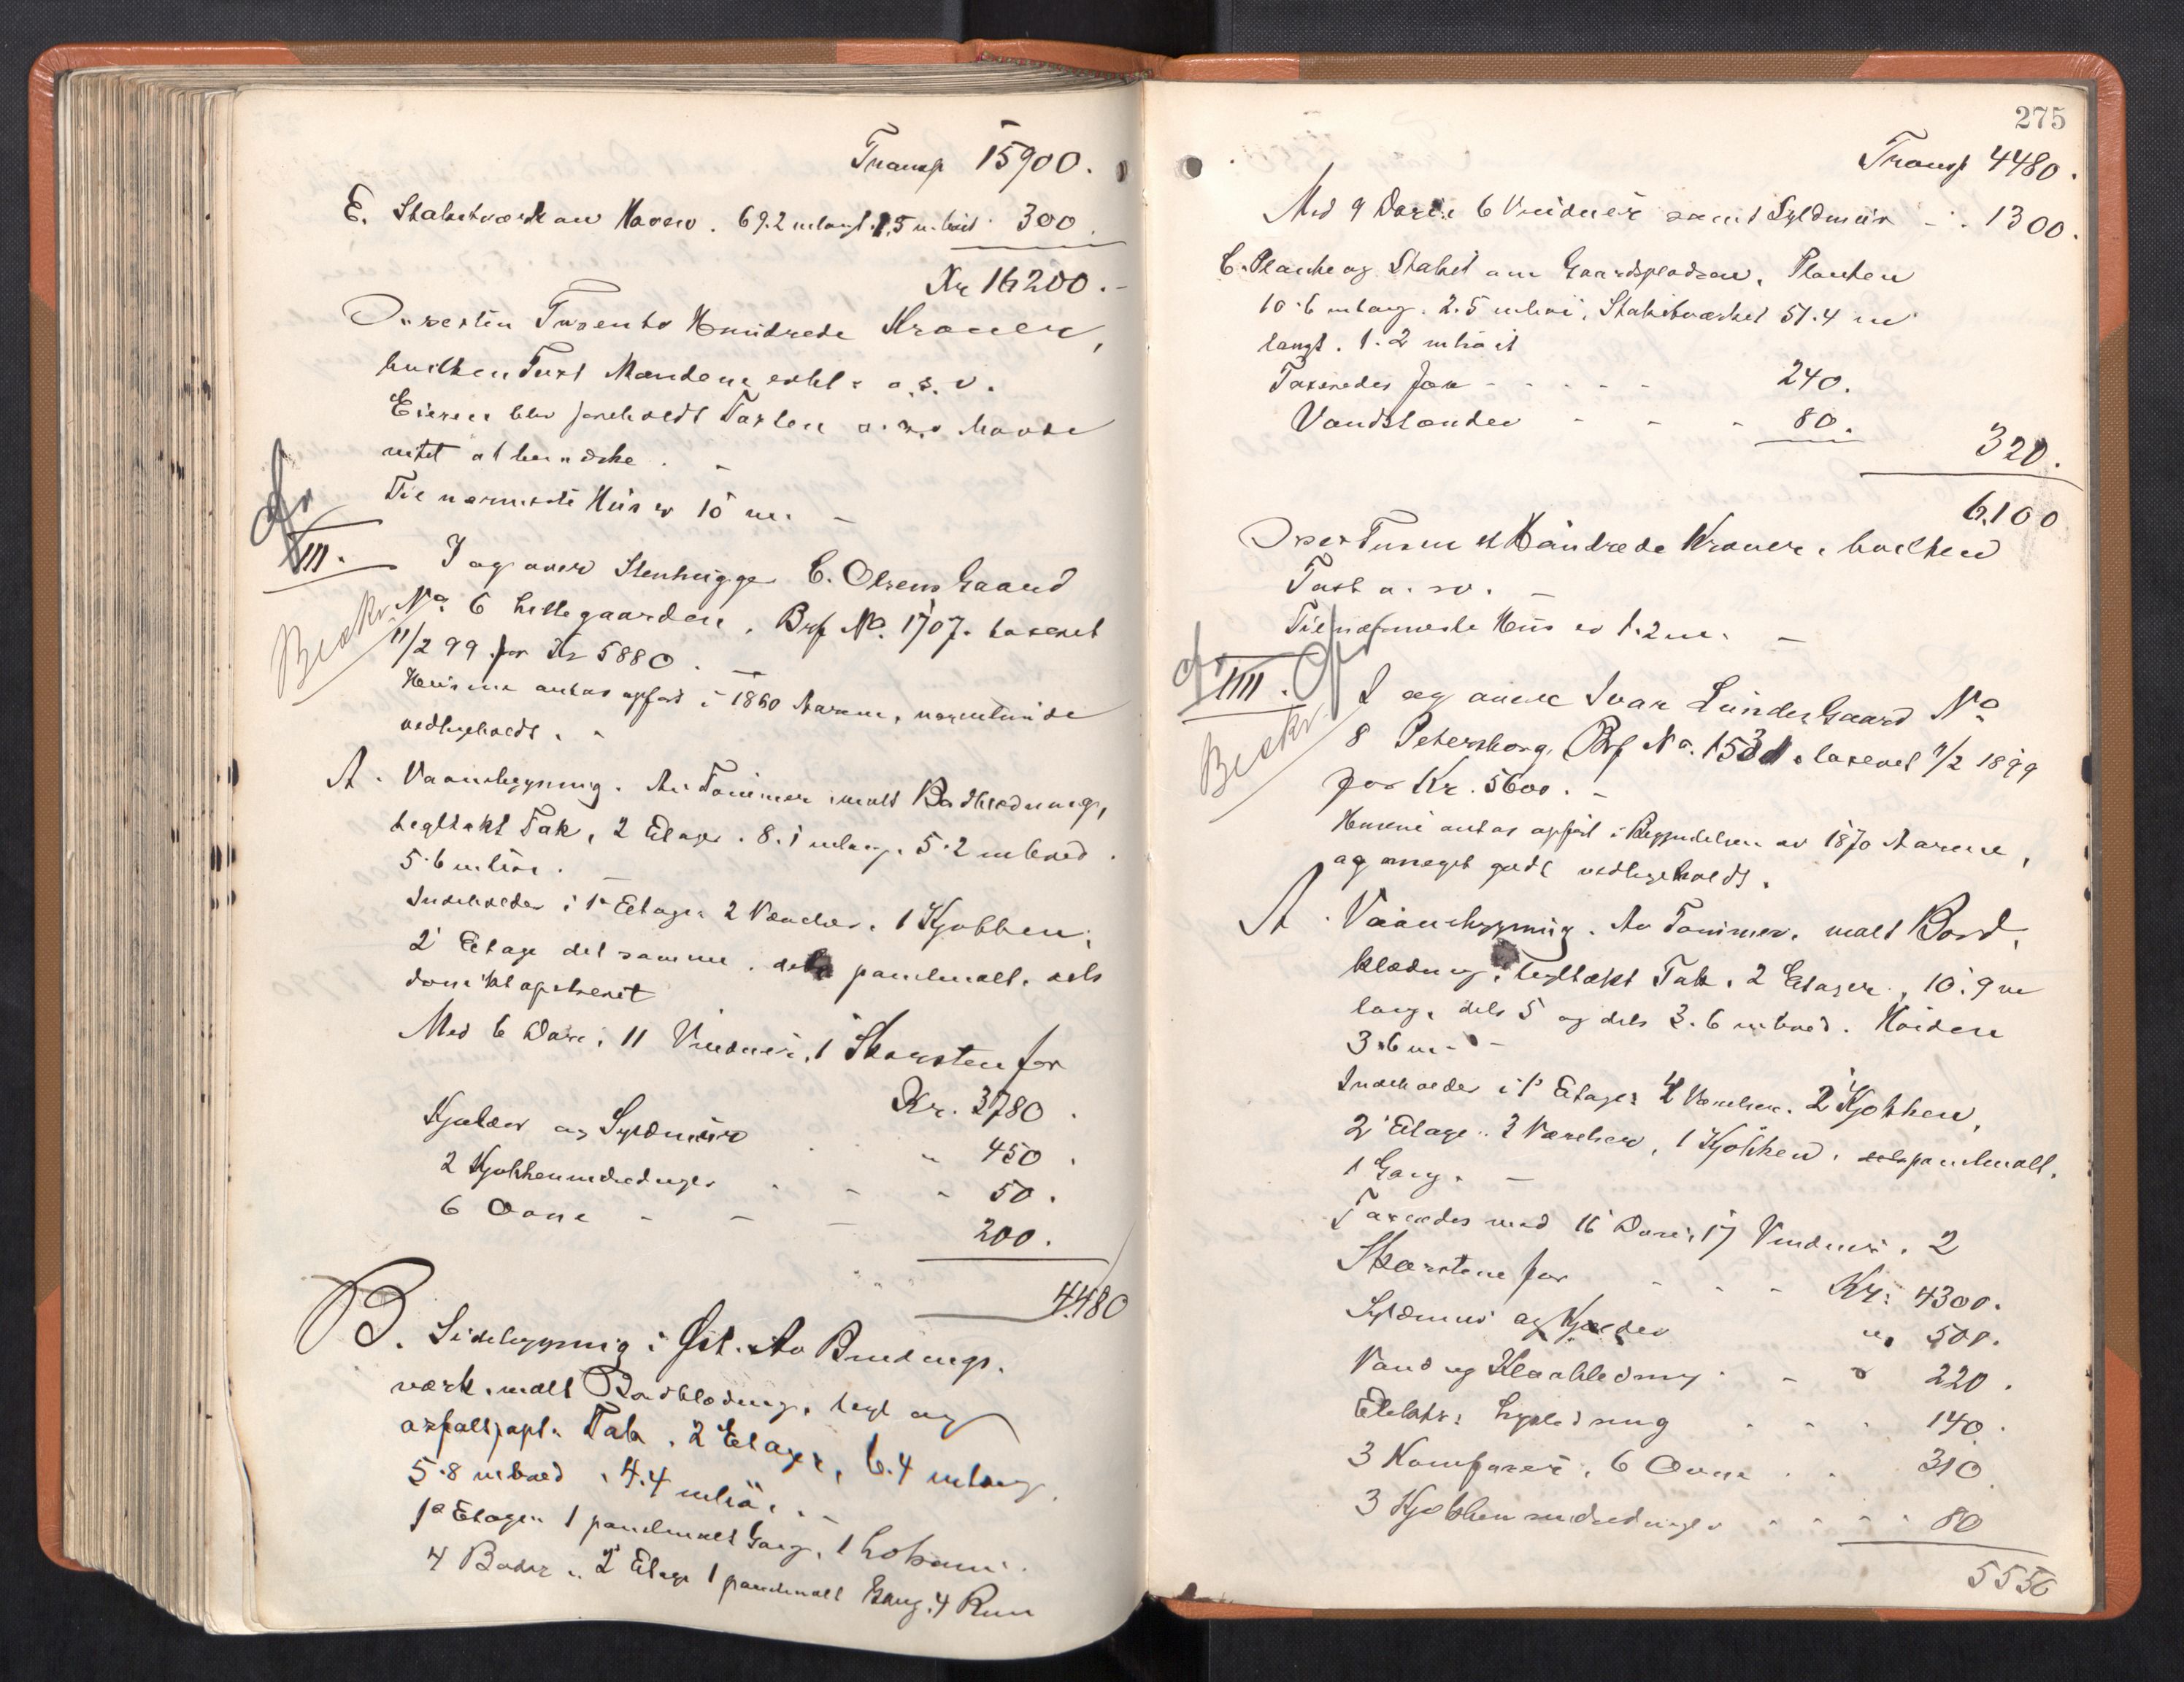 Transp 15900.
E. Stakitværk om Haven. 69.2 m langt. 1.5 m. høit. 300.
Kr 16200.-
Sexten Tusen to Hundrede Kroner,
hvilken Taxt Mændene erkl. o. s. v.
Eieren blev foreholdt Taxten o. s. v. havde
intet at bemærke. -
Til nærmeste Hus er 10 m. -
III. I og over Stenhugger C. Olsens Gaard
Beskr.
No 6 Lillegaarden, Brf No. 1707. taxeret
11/2 99 for Kr 5880. -
Husene antas opført i 1860 Aarene,
vedligeholdt.
A. Vaanbygning. Av Tømmer malt Bordklædning,
tegltækt Tak, 2 Etager. 8.1 m lang. 5.2 m bred.
5.6 m høi. -
Indeholder i 1ste Etage 2 Værelser. 1 Kjøkken,
2 Etage det samme. dels panelmalt. dels
Med 6 Døre, 11 Vinduer, 1 Skorsten for
Kr. 3780.
Kjælder og Syldmur " 450.
2 Kjøkkenindredninger - - " 50.
6 Ovne - - - 200.
4480
B. Sidebygning i Øst. Av Bindings-
værk. malt Bordklædning, tegl og
asfaltpapt. Tak. 2 Etager, 6.4 m lang
5.8 m bred, 4.4 m høi. -
1ste Etage 1 panelmalt Gang, 1 Lokum.
4 Boder. 2 Etage 1 panelmalt Gang. 4 Rum
275
Transp 4480.
Med 9 Døre 6 Vinduer samt Syldmur - . 1300.
C. Planke og Stakit om Gaardspladsen. Planken
10.6 m lang. 2.5 m høi. Stakitværket 51.4 m
langt. 1.2 m høit
Taxeredes for - - - - 240.
Vandstænder - - - 80.
320.
6.100
Sex Tusen et Hundrede Kroner, hvilken
Taxt o. sv. -
Til nærmeste Hus er 1.2 m. -
IIII. I og over Ivar Lunde Gaard No
Beskr.
8 Petersborg, Brf No. 153 taxeret 11/2 1899
for Kr. 5600. -
Husene antas opført i Begyndelsen av 1870 Aarene,
og meget godt vedligeholdt.
A. Vaanbygning. Av Tømmer. malt Bord-
klædning, tegltækt Tak. 2 Etager, 10.9 m
lang, dels 5 og dels 3.6 m bred. Høiden
3.6 m. -
Indeholder i 1ste Etage: 4 Værelser. 2 Kjøkken,
2 Etage: 3 Værelser, 1 Kjøkken. panelmalt.
1 Gang. -
Taxeredes med 16 Døre, 17 Vinduer. 2
Skorstene for - - - Kr: 4300.
Syldmur og Kjælder " 500.
Vand og Kloakledning - - " 220.
Elektr: Lysledning . . . 140.
3 Komfurer, 6 Ovne . . 310.
3 Kjøkkenindredninger . . . . 80
5550